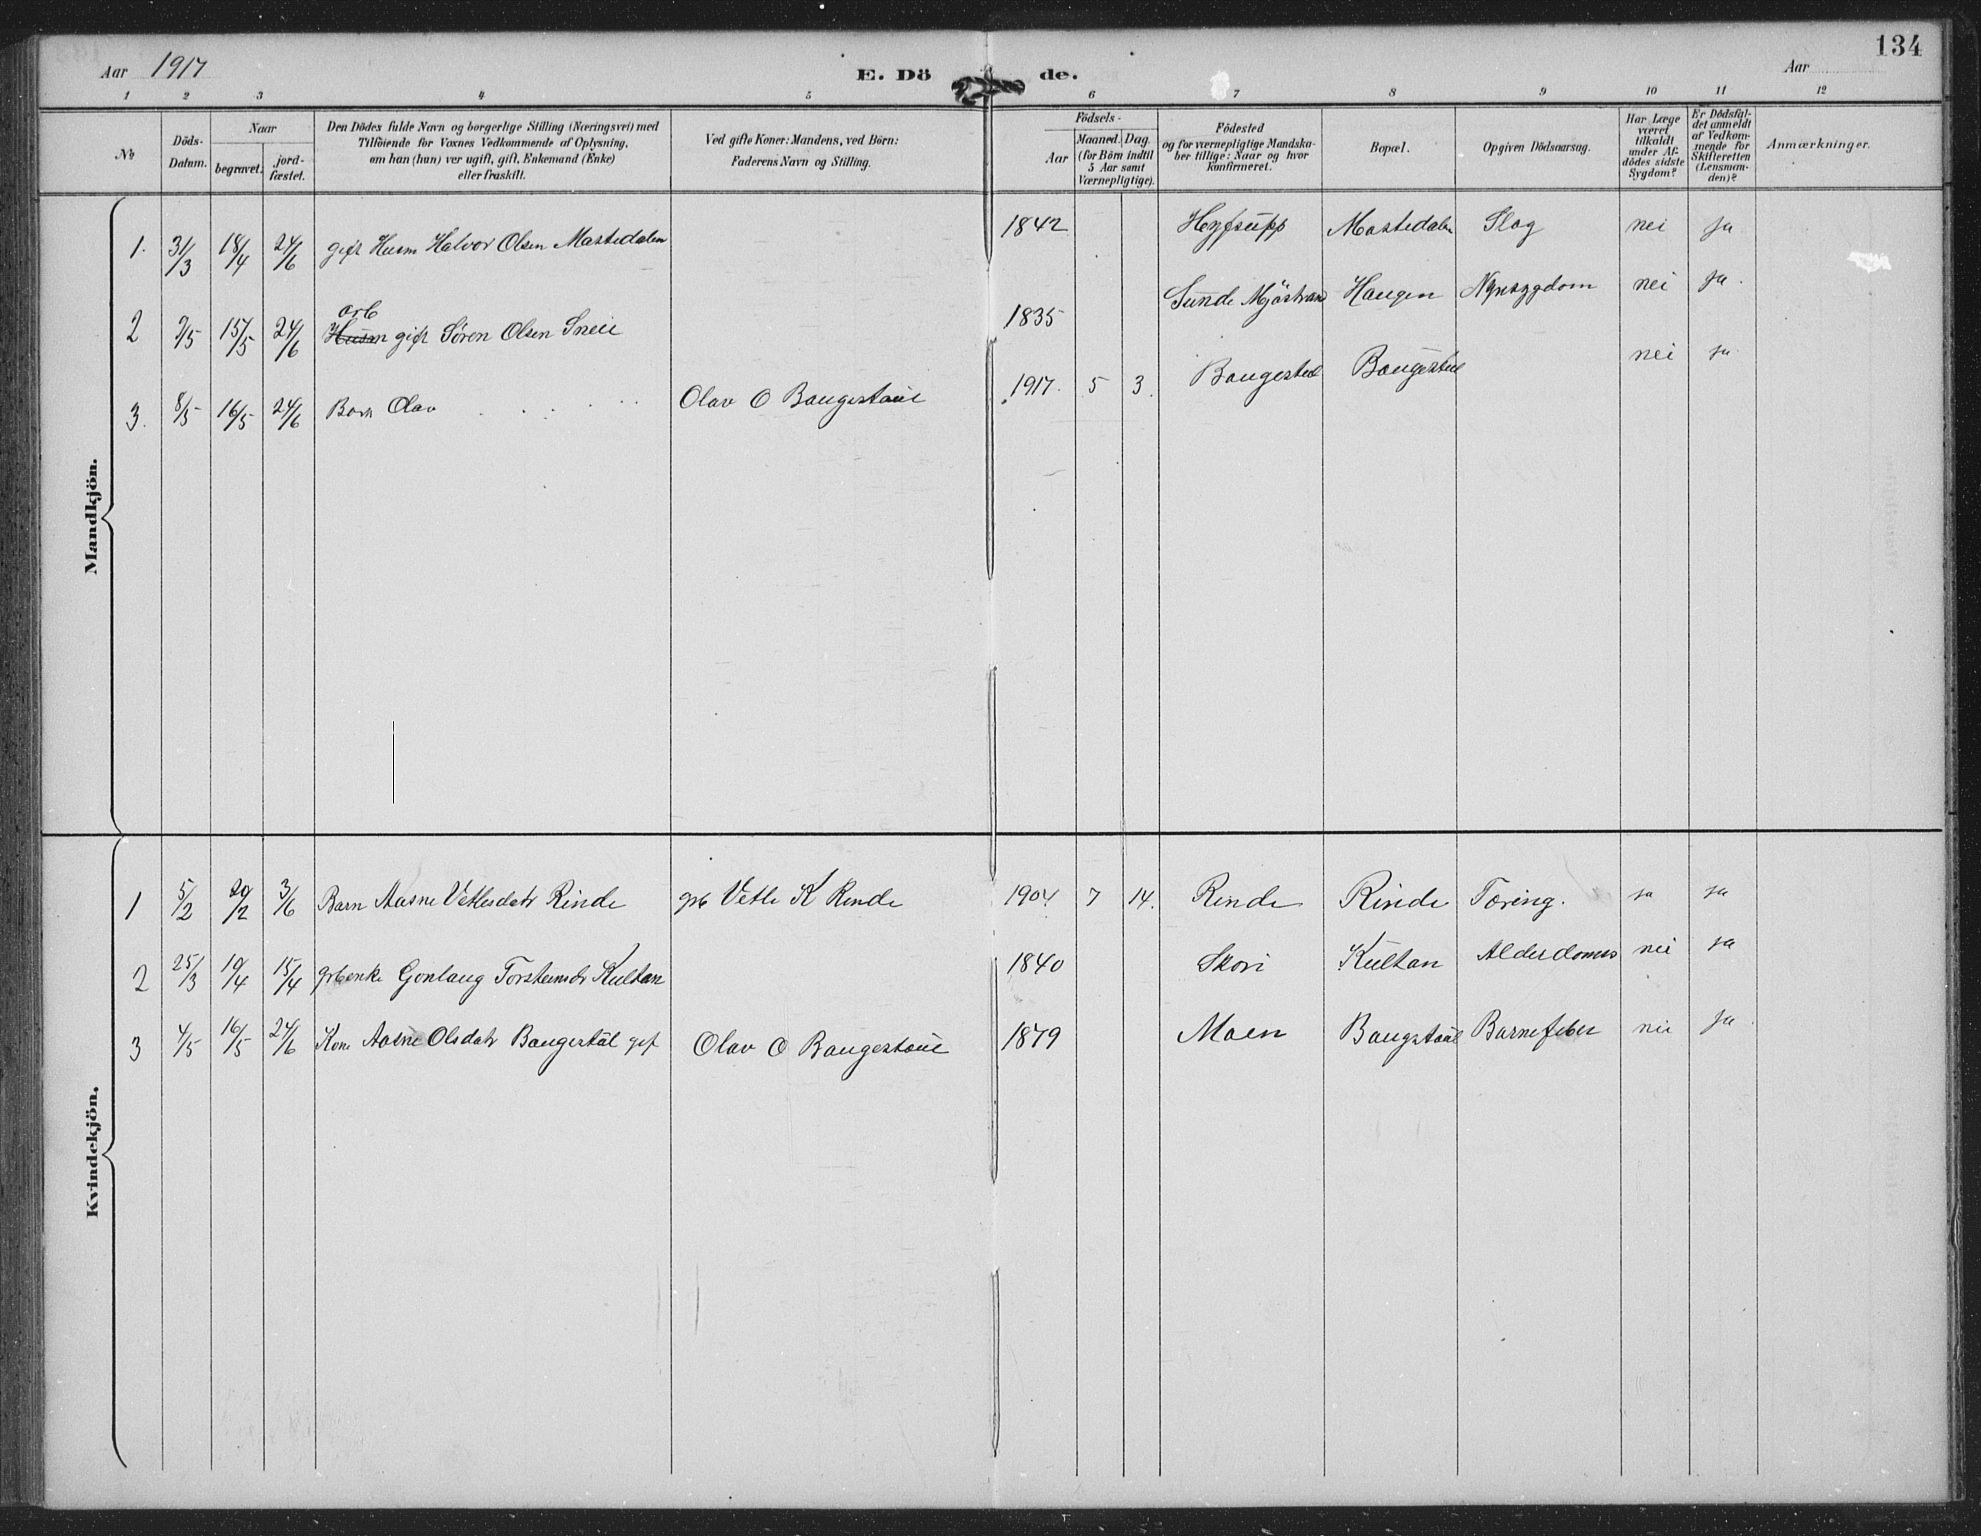 134
Aar 1917 E. Dö de. Aar
1 2 3 4 5 6 7 8 9 10 11 12
№
Döds-
Datum.
Naar
begravet.
jord-
fæstet.
Den Dödes fulde Navn og borgerlige Stilling (Næringsvei) med
Tilföiende for Voxnes Vedkommende af Oplysning,
om han (hun) var ugift, gift, Enkemand (Enke)
eller fraskilt.
Ved gifte Koner: Mandens, ved Börn:
Faderens Navn og Stilling.
Födsels-
Aar
Maaned. Dag.
(for Börn indtil
5 Aar samt
Værnepligtige).
Födested
og for værnepligtige Mandska-
ber tillige: Naar og hvor
konfirmeret.
Bopæl.
Opgiven Dödsaarsag.
Har Læge
været
tilkaldt
under Af-
dödes sidste
Sygdom?
Er Dödsfal-
det anmeldt
af Vedkom-
mende for
Skifteretten
(Lensman-
den)?
Anmærkninger.
Mandkjön.
1. 31/3 18/4 24/6 gift Husm Halvor Olsen Mastedalen 1842 Mastedalen Slag nei ja
arb
2 9/5 15/5 24/6 Husm gift Søren Olsen 1835 Sunde Mjøstrand Haugen Nyresygdom nei ja.
3. 8/5 16/5 24/6 Barn Olav Olav O Baugestaul 1917. 5 3. nei ja
Kvindekjön.
1 5/2 20/2 3/6 Barn Aasne Vetlesdatr Rinde grb Vetle K Rinde 1904 7 14. Rinde Rinde Tæring. ja ja
2 25/3 10/4 15/4 grbenke Gonlaug Torsteinsdr Kultan 1840 Skori Kultan Alderdoms nei ja
3 4/5 16/5 24/6 Kone Aasne Olsdatr Baugestul gif Olav O Baugestaul 1879 Moen Baugstaul Barnefeber nei ja